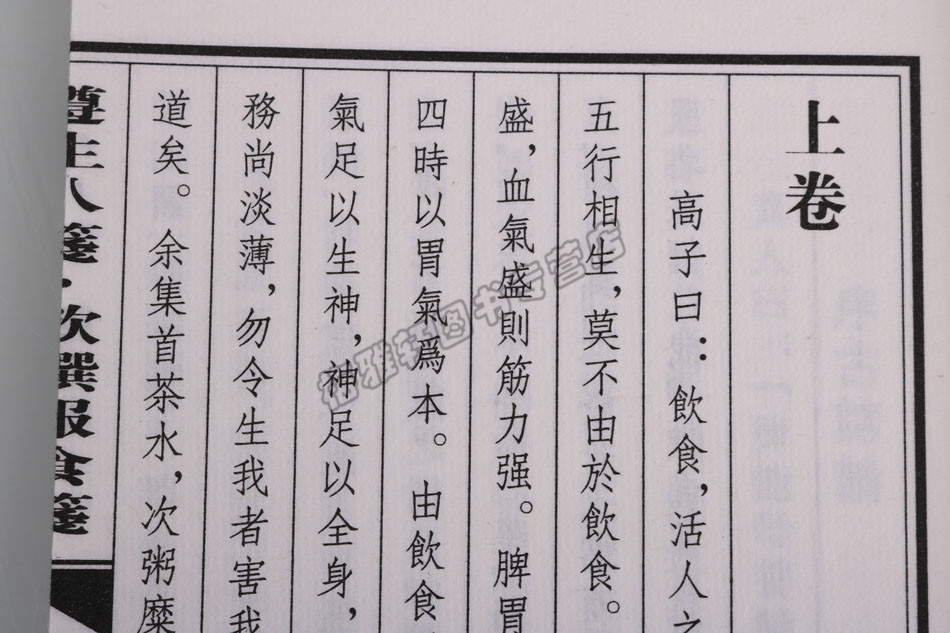 上卷
高子曰：飲食，活人之
五行相生，莫不由於飲食。
盛，血氣盛則筋力强。脾胃
四時以胃氣爲本。由飲食
氣足以生神，神足以全身，
務尚淡薄，勿令生我者害我
道矣。余集首茶水，次粥糜
遵生八箋·飲饌服食箋
雅轩图书专营店